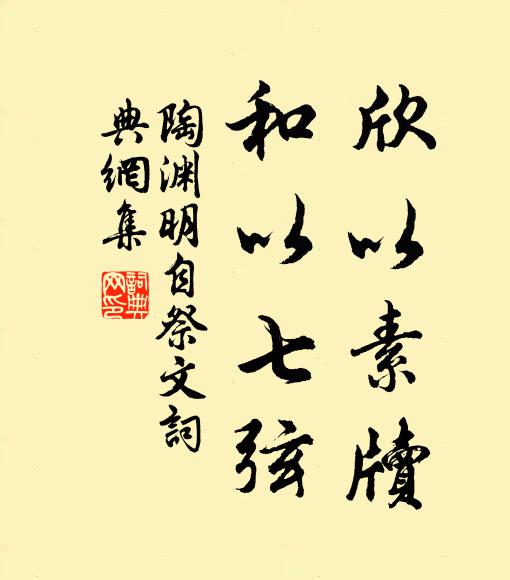 欣以素牘
和以七弦
陶渊明自祭文詞
典網集
詞典
网印